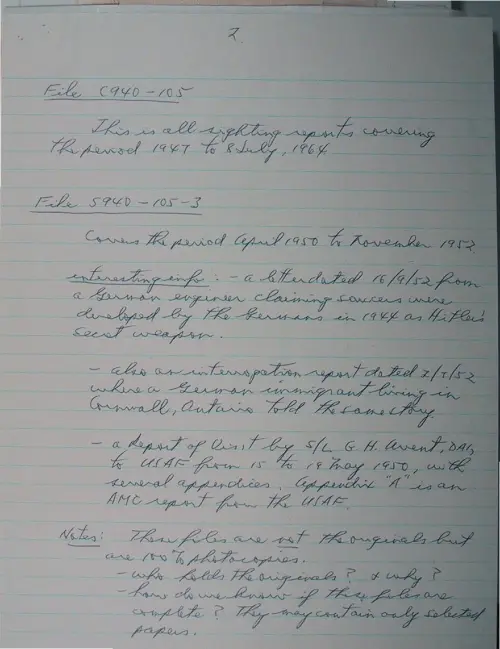 2
File C940-105
This is all sighting reports covering
the period 1947 to 8 July, 1964
File S940-105-3
Covers the period April 1950 to November 1952
interesting info: - a letter dated 16/9/52 from
a German engineer claiming saucers were
developed by the Germans in 1944 as Hitler's
secret weapon.
- also an interrogation report dated 2/7/52
where a German immigrant living in
Cornwall, Ontario told the same story
- a Report of Visit by S/L G H. Avent, DAI,
to USAF from 15 to 19 May 1950, with
several appendices. Appendix "A" is an
AMC report from the USAF.
Notes: These files are not the originals but
are 100% photocopies.
- who holds the originals? & why?
- how do we know if these files are
complete? They may contain only selected
papers.